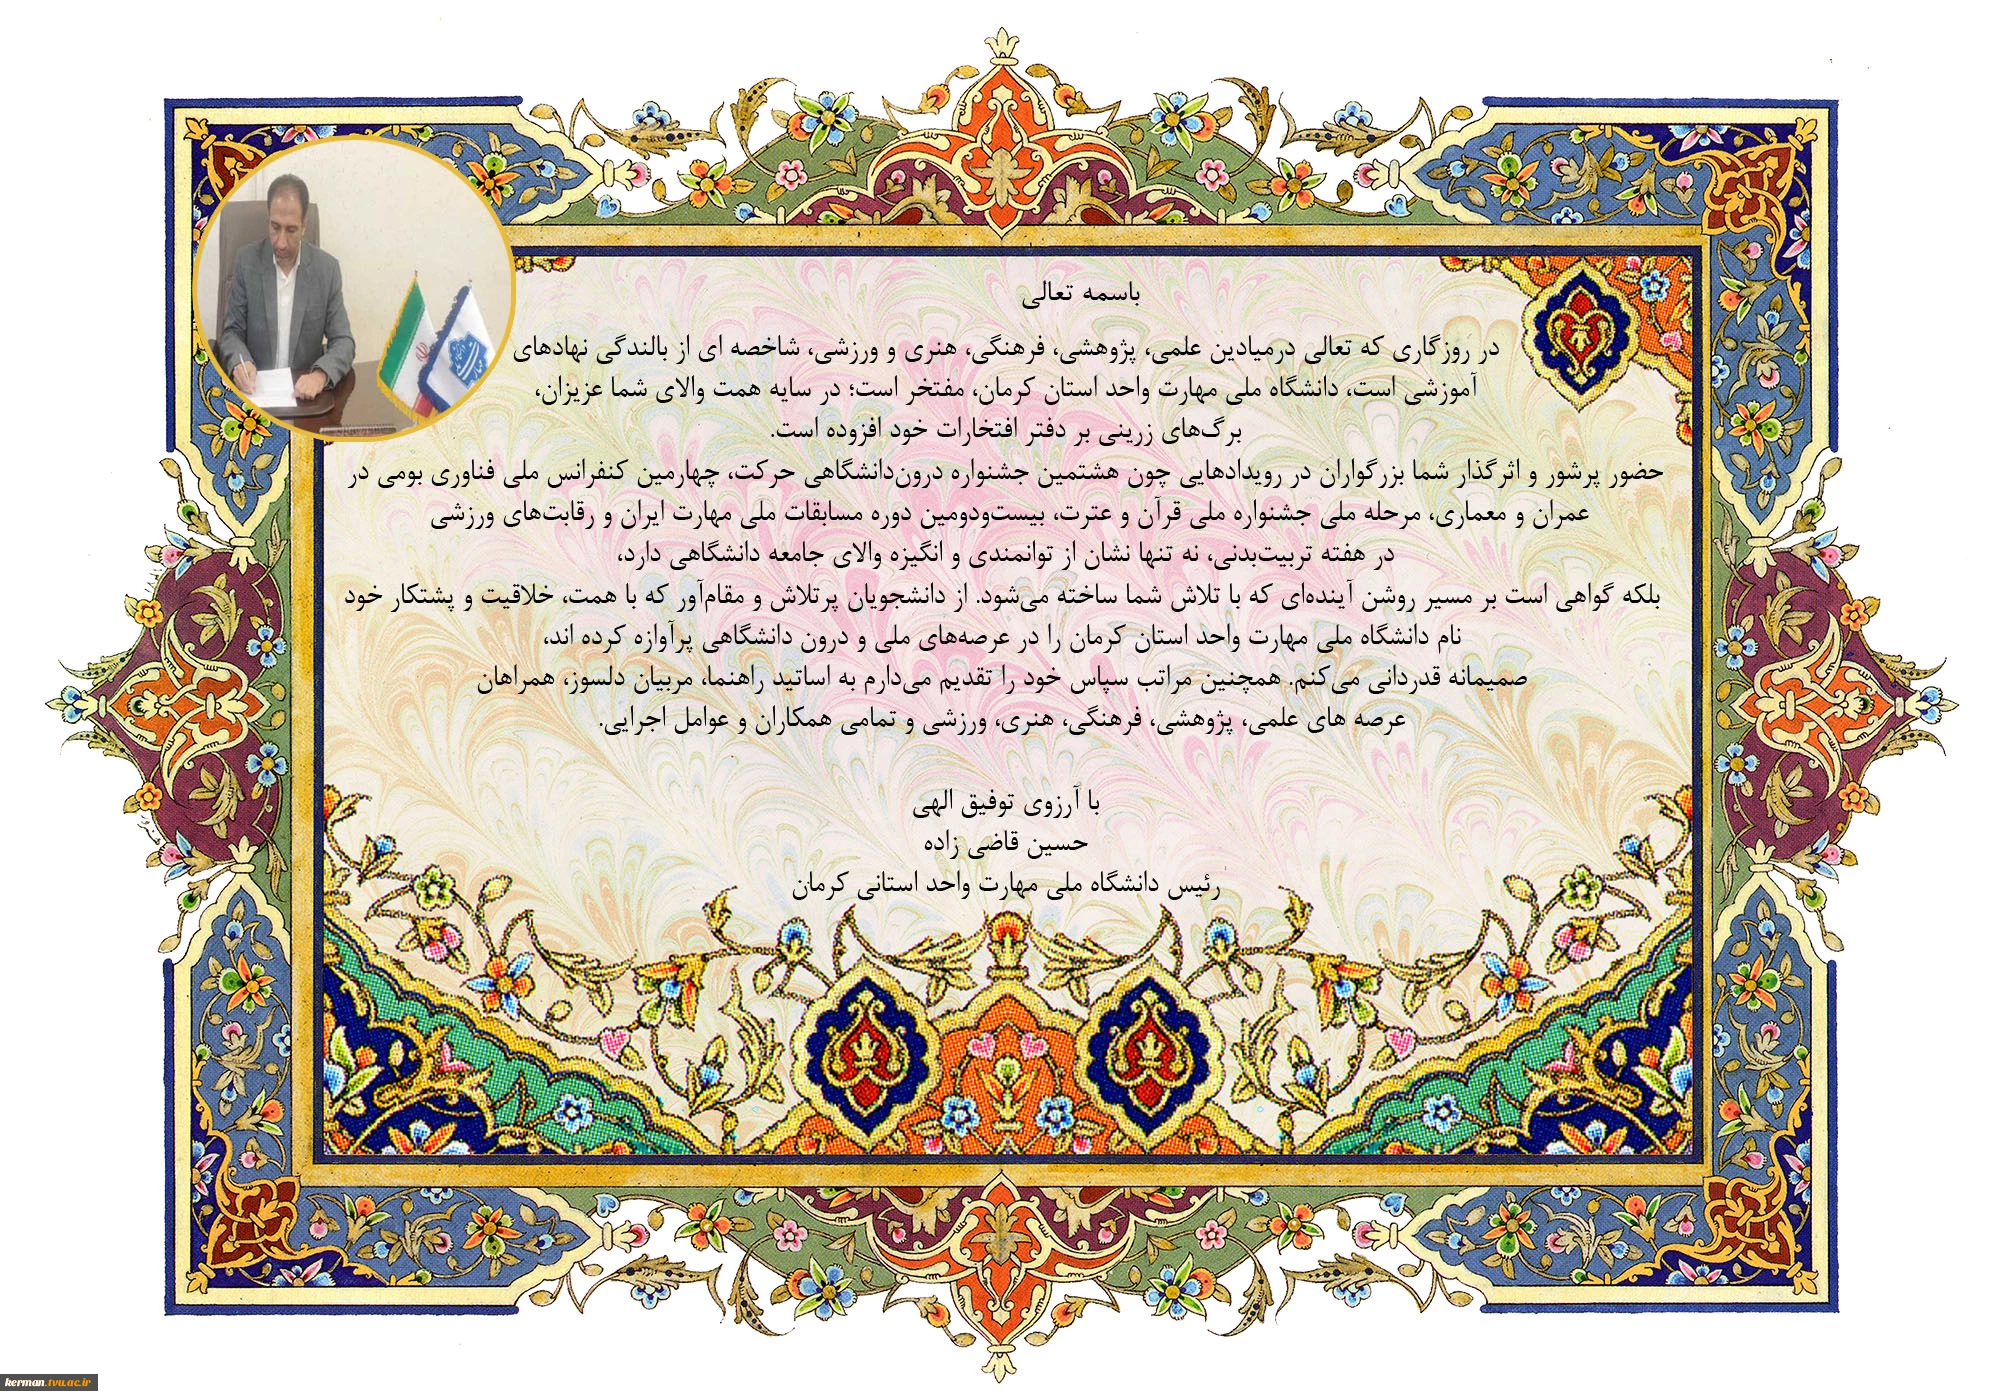 باسمه تعالی
در روزگاری که تعالی درمیادین علمی، پژوهشی، فرهنگی، هنری و ورزشی، شاخصه ای از بالندگی نهادهای
آموزشی است، دانشگاه ملی مهارت واحد استان کرمان، مفتخر است؛ در سایه همت والای شما عزیزان،
برگ‌های زرینی بر دفتر افتخارات خود افزوده است.
حضور پرشور و اثرگذار شما بزرگواران در رویدادهایی چون هشتمین جشنواره درون‌دانشگاهی حرکت، چهارمین کنفرانس ملی فناوری بومی در
عمران و معماری، مرحله ملی جشنواره ملی قرآن و عترت، بیست‌ودومین دوره مسابقات ملی مهارت ایران و رقابت‌های ورزشی
در هفته تربیت‌بدنی، نه تنها نشان از توانمندی و انگیزه والای جامعه دانشگاهی دارد،
بلکه گواهی است بر مسیر روشن آینده‌ای که با تلاش شما ساخته می‌شود. از دانشجویان پرتلاش و مقام‌آور که با همت، خلاقیت و پشتکار خود
نام دانشگاه ملی مهارت واحد استان کرمان را در عرصه‌های ملی و درون دانشگاهی پرآوازه کرده اند،
صمیمانه قدردانی می‌کنم. همچنین مراتب سپاس خود را تقدیم می‌دارم به اساتید راهنما، مربیان دلسوز، همراهان
عرصه های علمی، پژوهشی، فرهنگی، هنری، ورزشی و تمامی همکاران و عوامل اجرایی.
با آرزوی توفیق الهی
حسین قاضی زاده
رئیس دانشگاه ملی مهارت واحد استانی کرمان
kerman.tvu.ac.ir